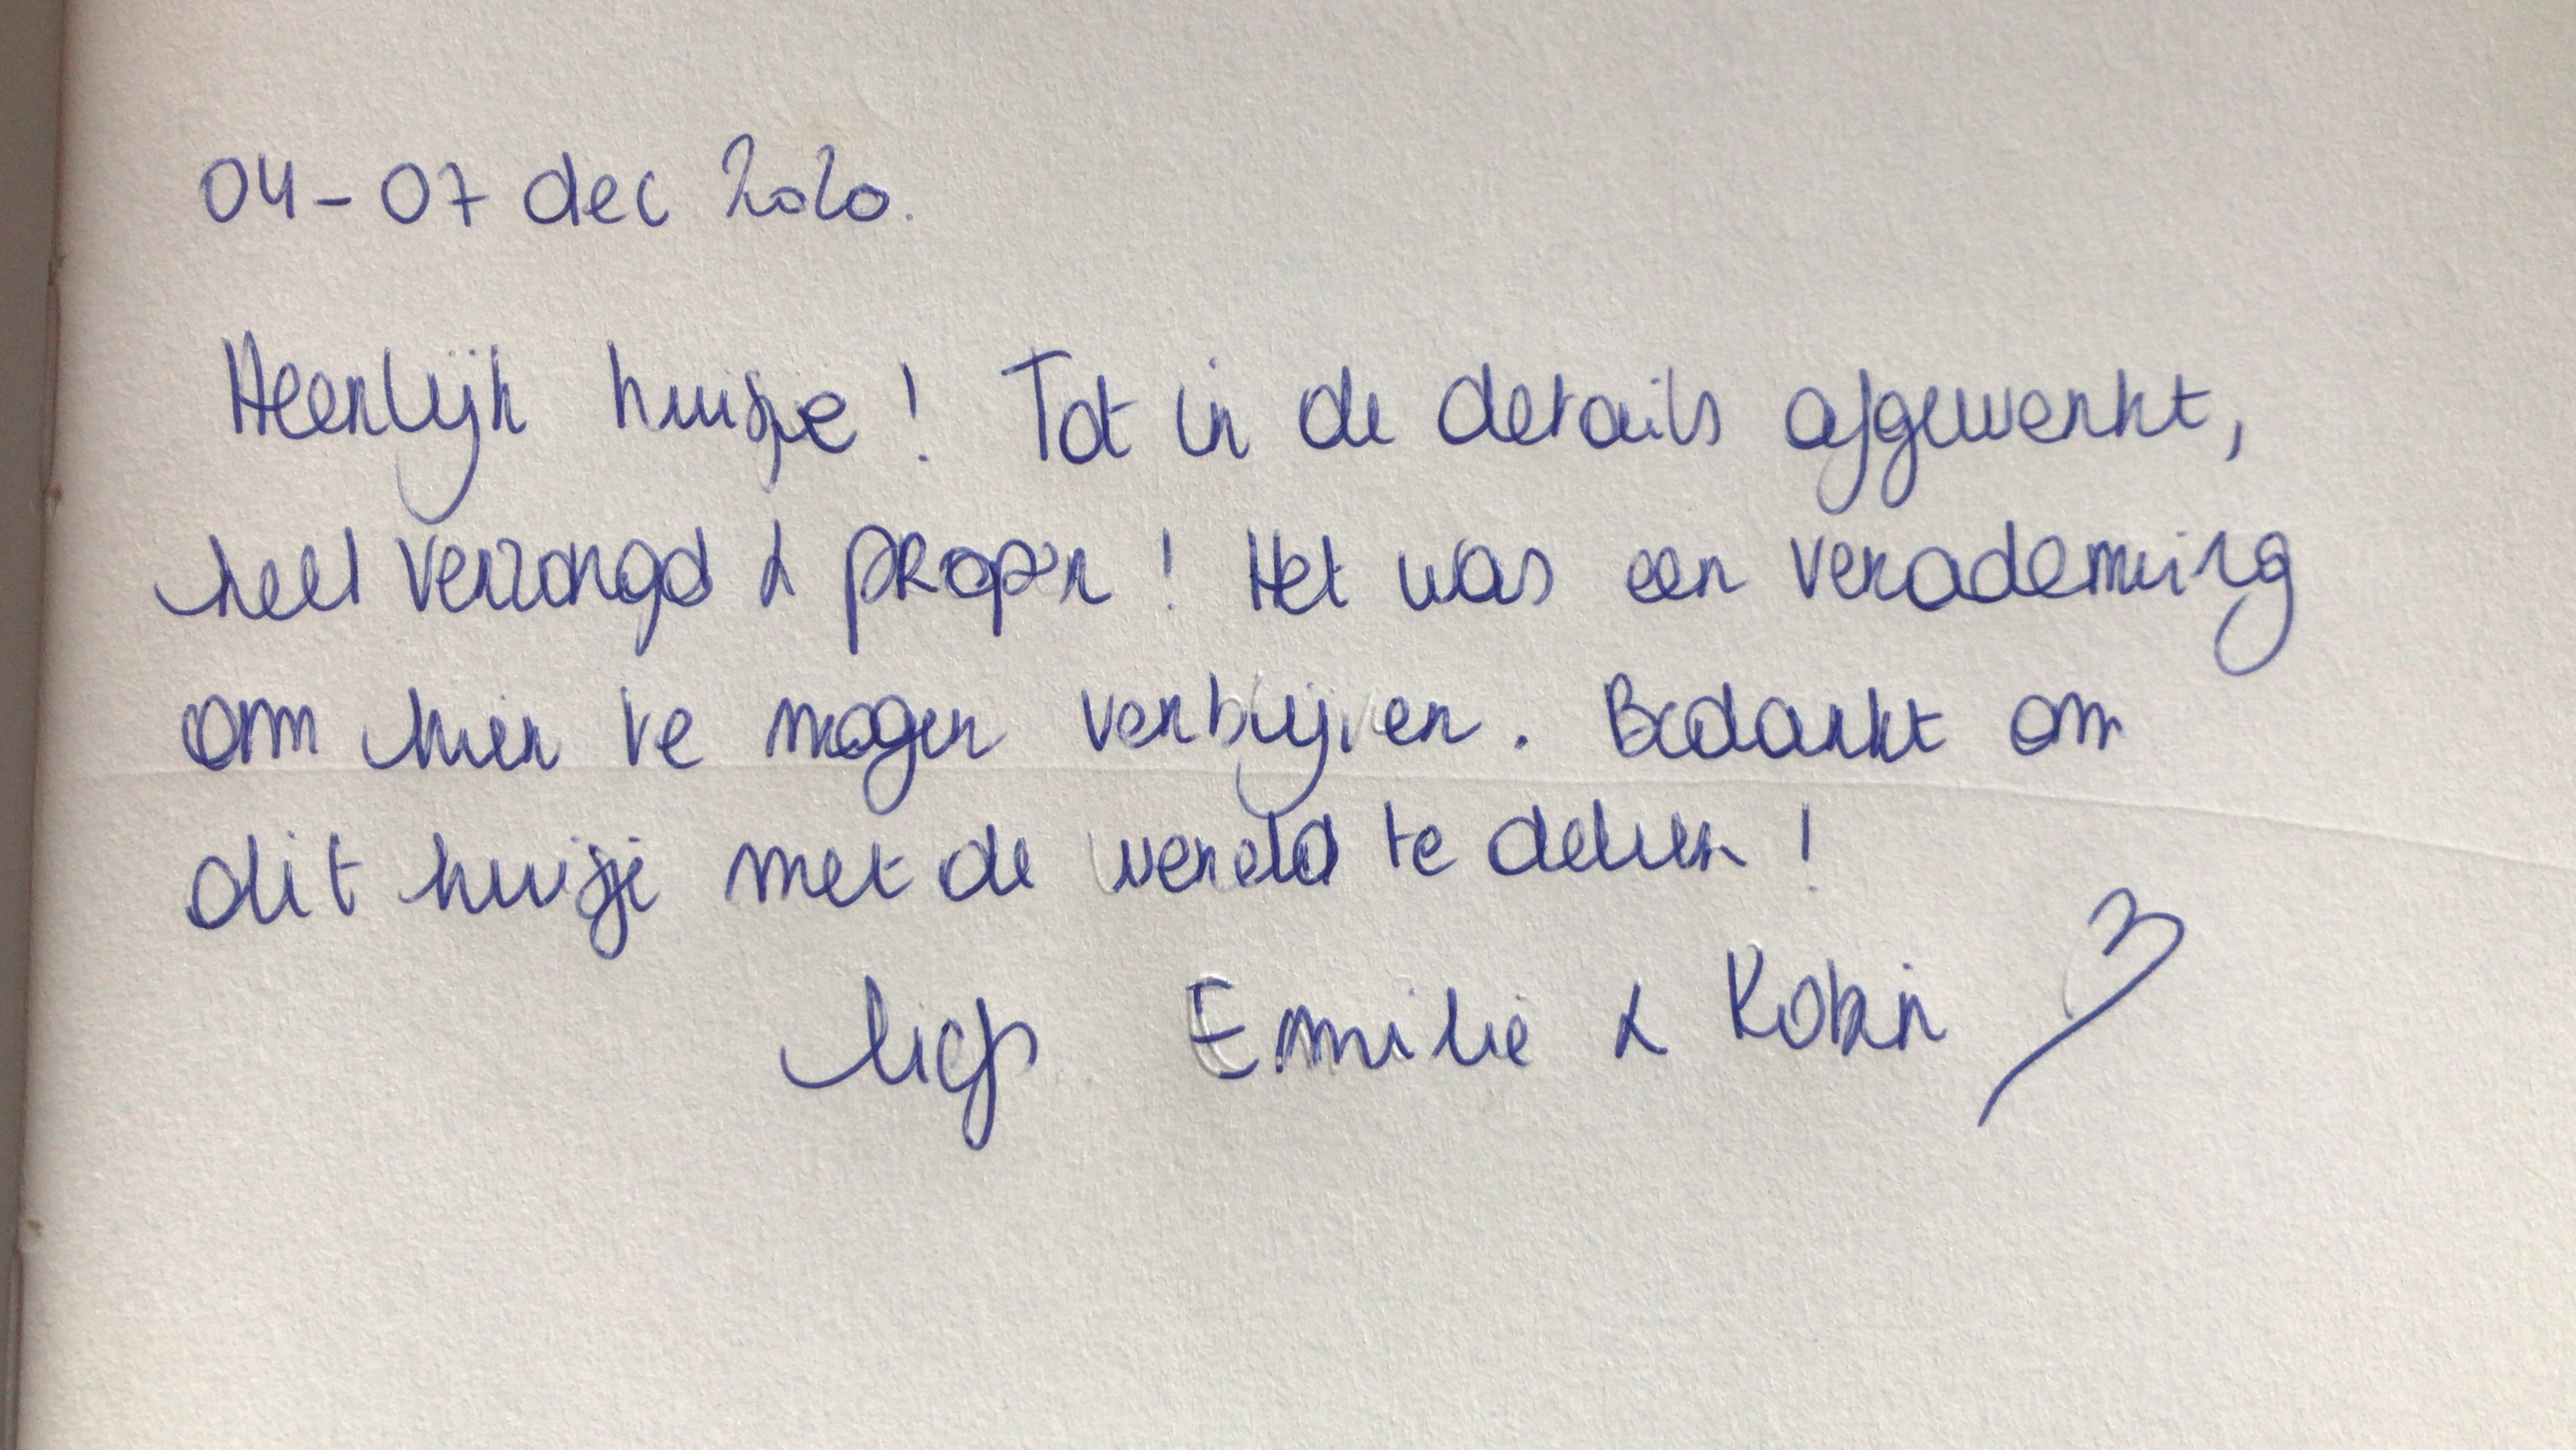 04-07 dec 2020.
Heerlijk huisje! Tot in de details afgewerkt,
heel verzorgd & proper! Het was een verademing
om hier te mogen verblijven. Bedankt om
dit huisje met de wereld te delen!
liefs Emilie & Robin